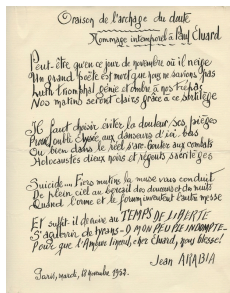 Oraison de l'archange du doute
Hommage intemporel à Paul Eluard
Peut-être qu'en ce jour de novembre où il neige
Un grand poète est mort que nous ne savions pas
Nos matins seront clairs grâce à ce sortilège
Il faut choisir éviter la douleur ses pièges
Ou bien dans le réel s'are-bouter aux combats
Holocaustes dieux noirs et régents sacrilèges
Suicide... Fiers mutins la muse vous conduit
De plein ciel au berceau des et du nuits
Quand l'orme et le forum inventent l'autre messe
Et suffit-il d'écrire au TEMPS DE LIBERTE
S'aguérir de tyrans - O MON PEUPLE INDOMPTE -
Pour que l'Amour fécond, cher Eluard, nous blesse!
Jean ARABIA
Paris, mardi, 18 novembre 1952.